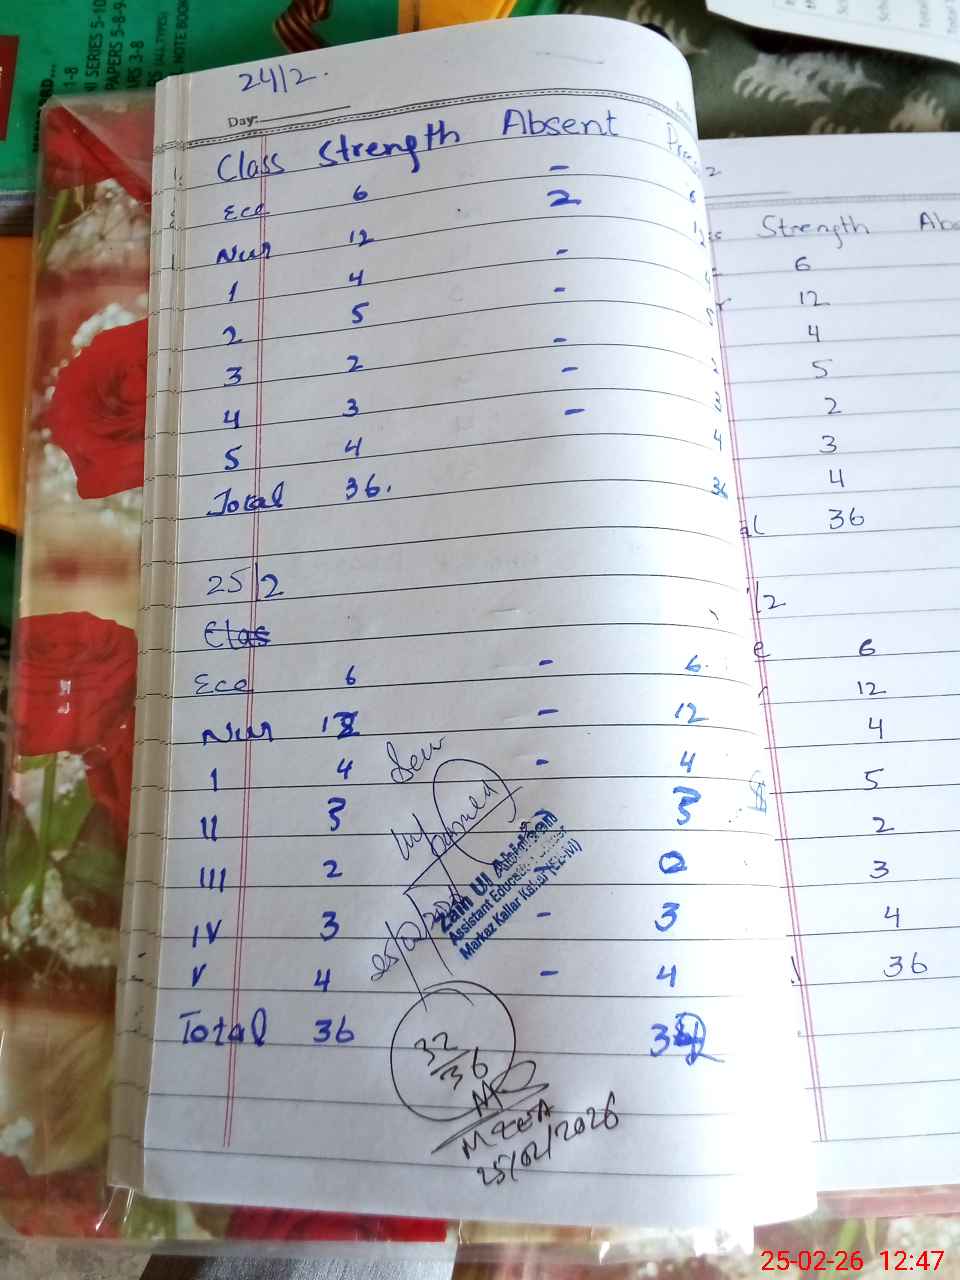 24/2.
Day:
Class Strength Absent
Ece 6 - 6
Nur 12 2 12
1 4 - 4
2 5 - 5
3 2 - 2
4 3 - 3
5 4 - 4
Total 36. 36
25/2
Class
Ece 6 - 6.
Nur 12 - 12
I 4 - 4
II 3 3
III 2 0
IV 3 - 3
V 4 - 4
Total 36
32/36
25/02/2026
Seen
Zain Ul
Assistant Education
Markaz Kallar
Strength
6
12
4
5
2
3
4
36
6
12
4
5
2
3
4
36
SERIES 5-10
PAPERS 5-8-9
3-8
NOTE BOOK
25-02-26 12:47